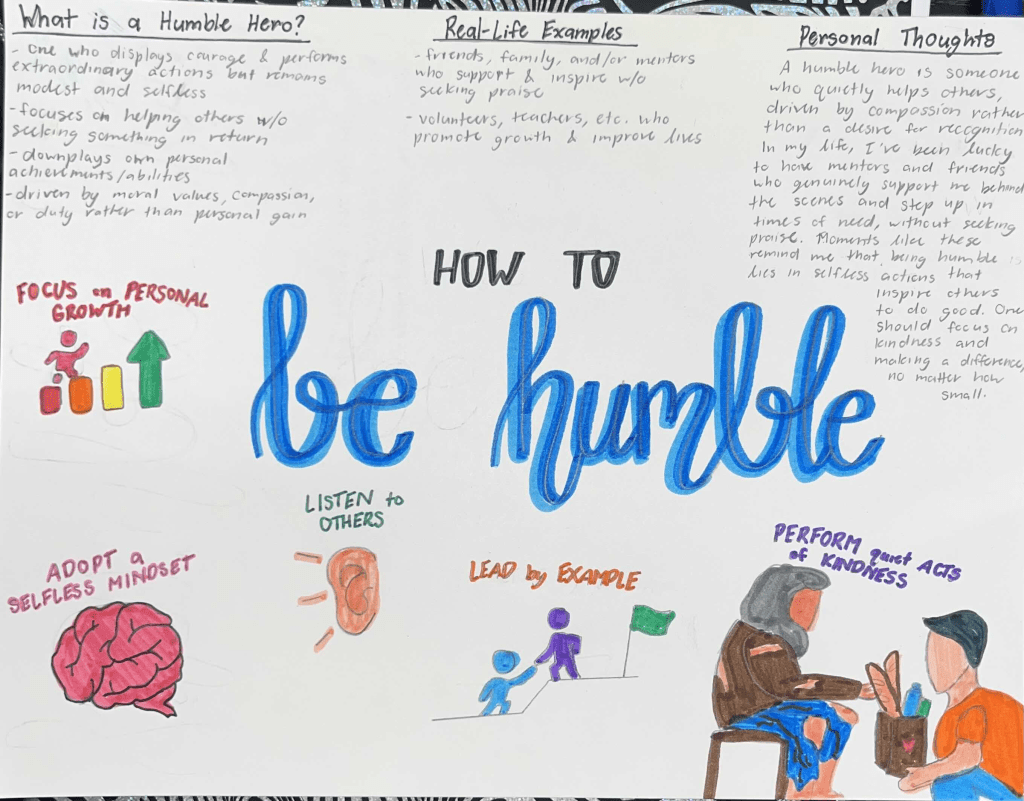 What is a Humble Hero?
- one who displays courage & performs
extraordinary actions but remains
modest and selfless
- focuses on helping others w/o
seeking something in return
- downplays own personal
achievements/abilities
- driven by moral values, compassion,
or duty rather than personal gain
Real-Life Examples
- friends, family, and/or mentors
who support & inspire w/o
seeking praise
- volunteers, teachers, etc. who
promote growth & improve lives
Personal Thoughts
A humble hero is someone
who quietly helps others,
driven by compassion rather
than a desire for recognition.
In my life, I've been lucky
to have mentors and friends
who genuinely support me behind
the scenes and step up in
times of need, without seeking
praise. Moments like these
remind me that being humble is
lies in selfless actions that
inspire others
to do good. One
should focus on
kindness and
making a difference,
no matter how
small.
HOW TO
be humble
FOCUS on PERSONAL
GROWTH
LISTEN to
OTHERS
ADOPT a
SELFLESS MINDSET
LEAD by EXAMPLE
PERFORM quiet ACTS
of KINDNESS